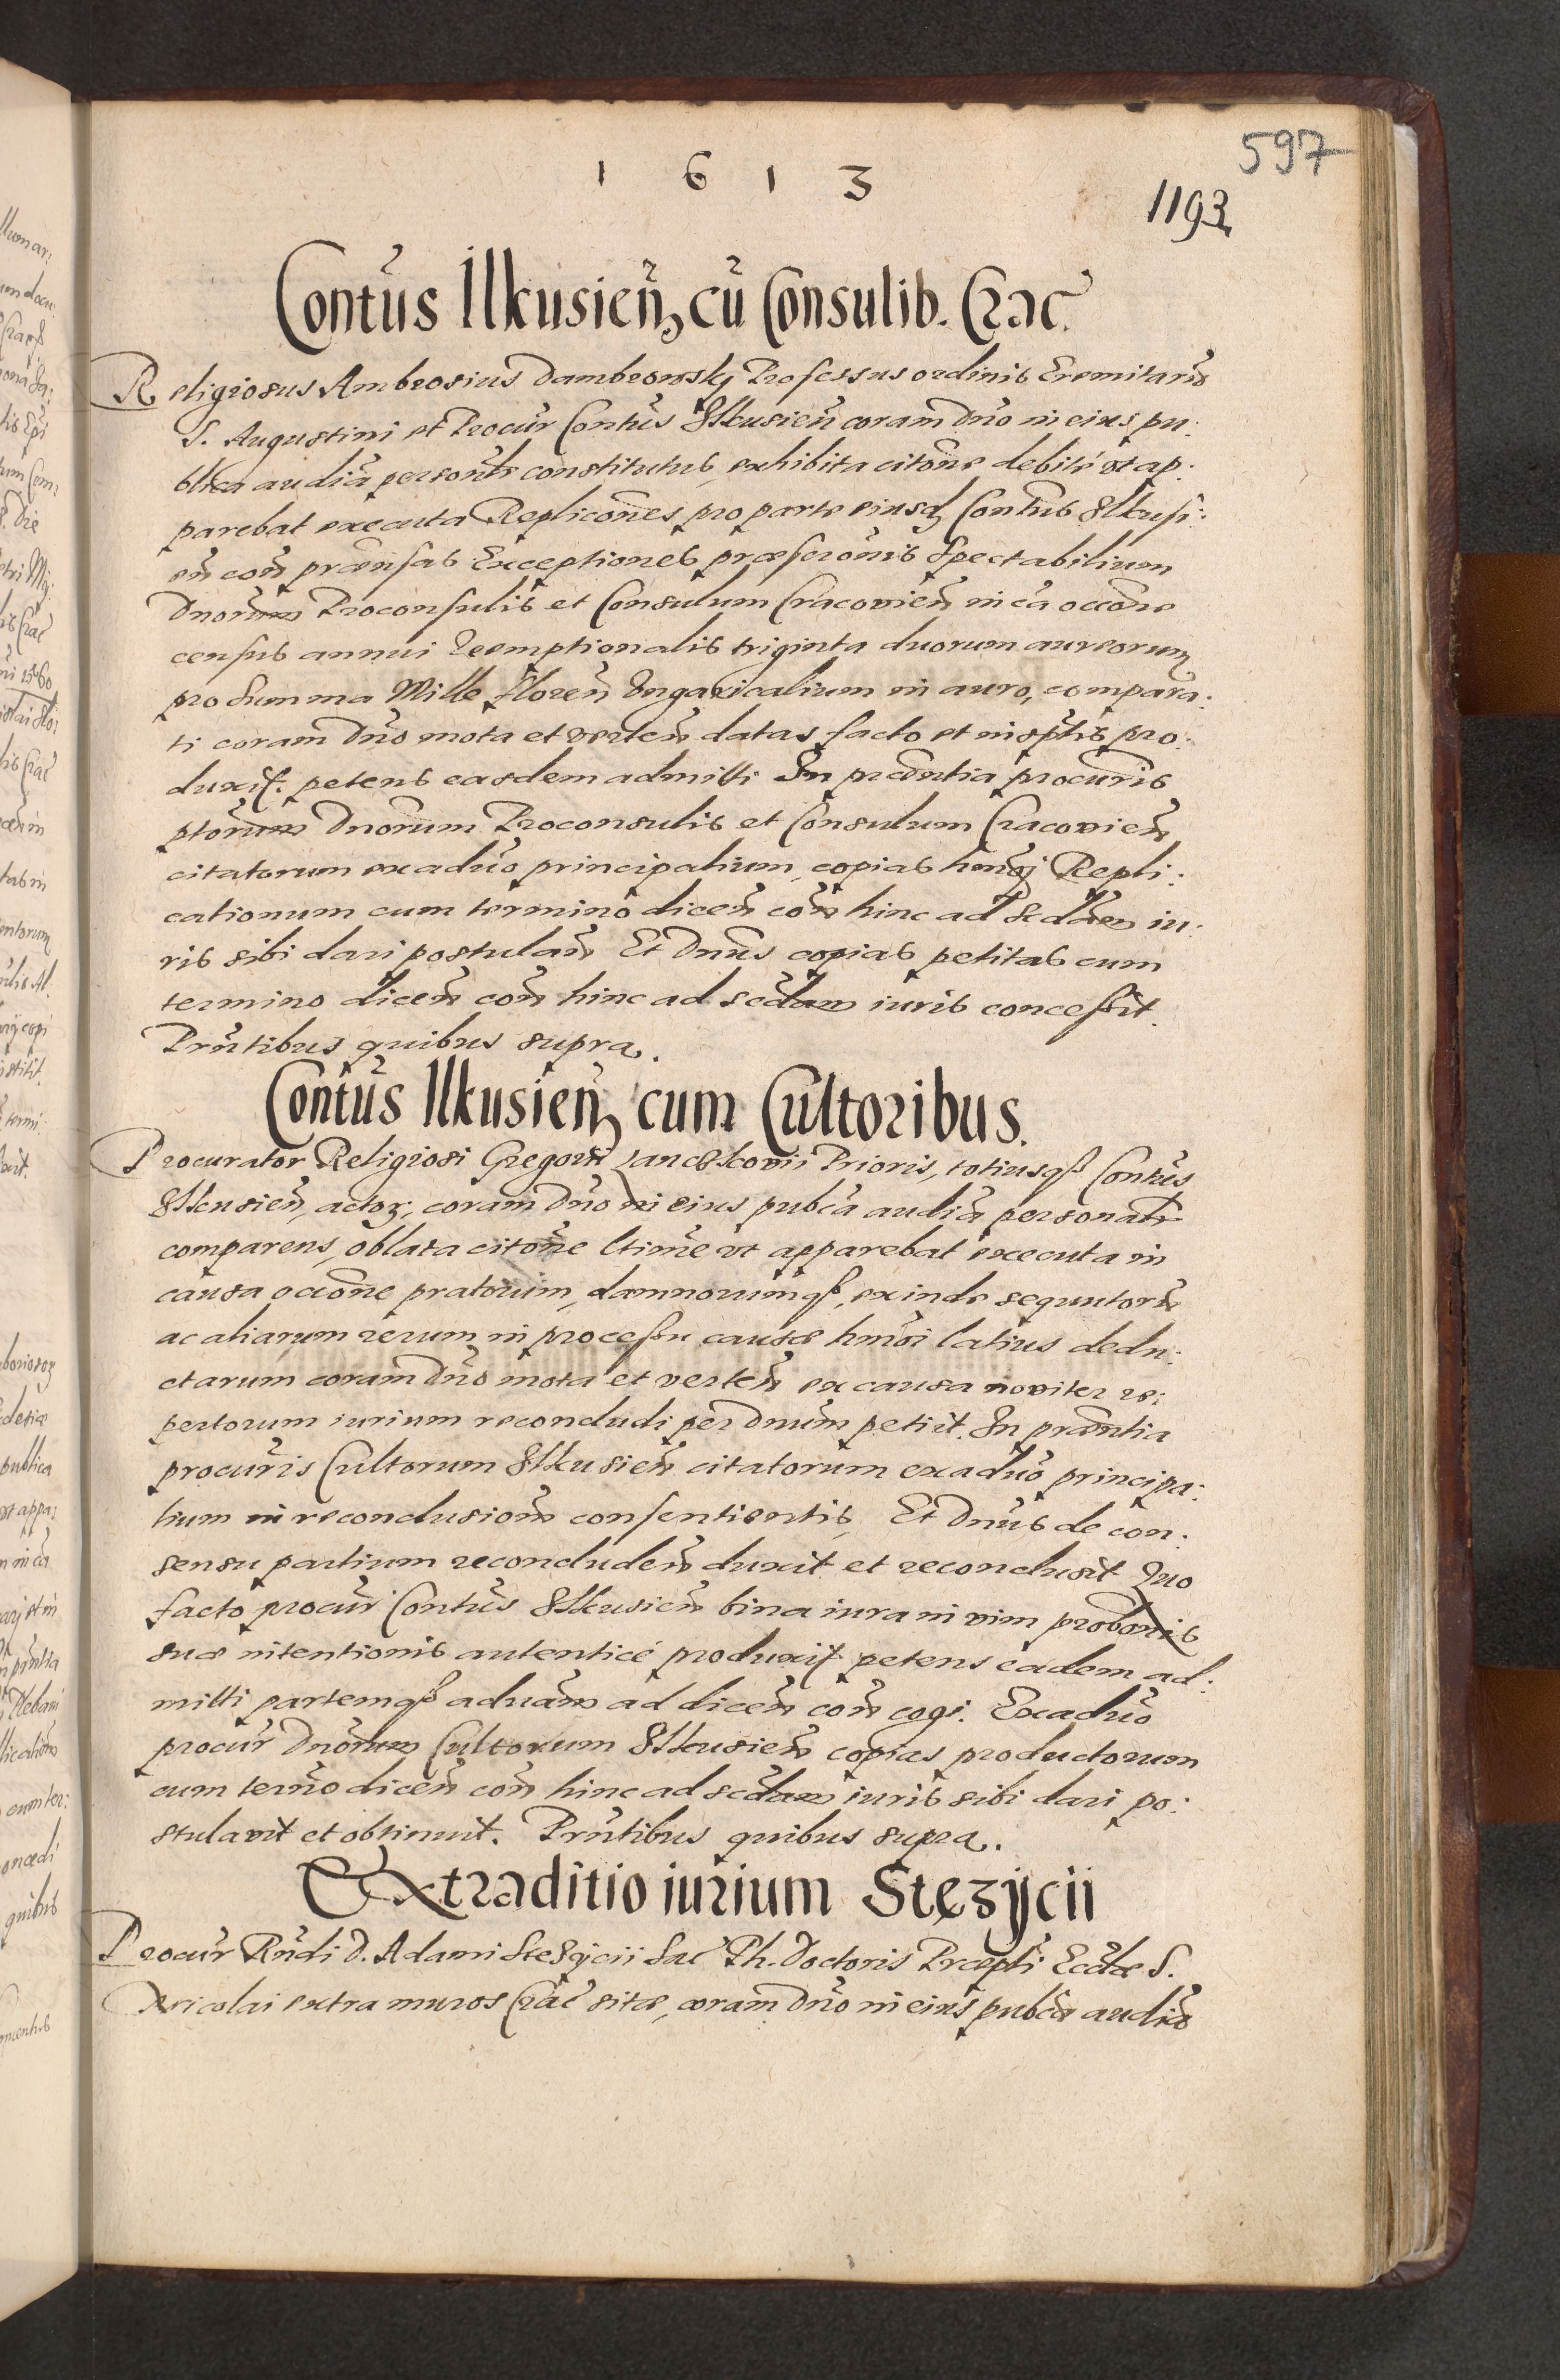 597
1 6 1 3
1193
Contūs Ilkusieñ cū Consulib. Crac.
Religiosus Ambrosius Dambrowsky Professus ordinis Eremitarū
S. Augustini et Procūr Contūs Ilkusieñ coram Dño in eius pu:
blica audiā persoñlr constitutus, exhibita citōne debitè ut ap:
parebat executa Replicōnes pro parte eiusd Contūs Ilkusi:
eñ coñ prætensas Exceptiones præfectōnis Spectabilium
Dnorum Proconsulis et Consulum Cracovieñ in cā occōne
census annui reemptionalis triginta duorum aureorum
pro summa Mille floreñ Ungaricalium in auro, compara:
ti coram Dño mota et verteñ datas facto et in sptis pro:
duxit. petens easdem admitti In præntia procuris
ptorum Dnorum Proconsulis et Consulum Cracovieñ
citatorum ex aduō principalium, copias hmōi Repli:
cationum cum termino diceñ coñ hinc ad Scdam iu:
ris sibi dari postulañ Et Dnus copias petitas cum
termino diceñ coñ hinc ad scdam iuris concessit.
Prñtibus quibus supra.
Contūs Ilkusieñ cum Cultoribus.
Procurator Religiosi Gregorii Prioris, totiusq Contūs
Ilkusieñ, actor, coram Dño in eius pubcā audiā personalr
comparens, oblata citōne ltime ut apparebat executa in
causa occōne pratorum, damnorumq, exinde sequutorū
ac aliarum rerum in processu causæ hmōi latius dedu:
ctarum coram Dño mota et verteñ ex causa noviter re:
pertorum iurium recondudi per Dnum petiit. In præntia
procūris Cultorum Ilkusieñ citatorum ex aduō principa:
lium in reconclusioñe consentientis, Et Dnus de con:
sensu partium recondudeñ duxit et reconclusit Quo
facto procūr Contūs Ilkusieñ bina iura in vim probonis
suæ intentionis autenticè produxit petens eadem ad:
mitti partemq aduām ad diceñ coñ cogi. Ex aduō
procūr Dnorum Cultorum Ilkusieñ copias productorum
cum termō diceñ coñ hinc ad scdam iuris sibi dari po:
stulavit et obtinuit. Prñtibus quibus supra.
Extraditio iurium Stęzÿcii
Procūr Rñdi D. Adami Stęzÿcii Sac Ph. Doctoris Præpti Ecclæ S.
Nicolai extra muros Crac sitæ, coram Dño in eius pubcā audiā